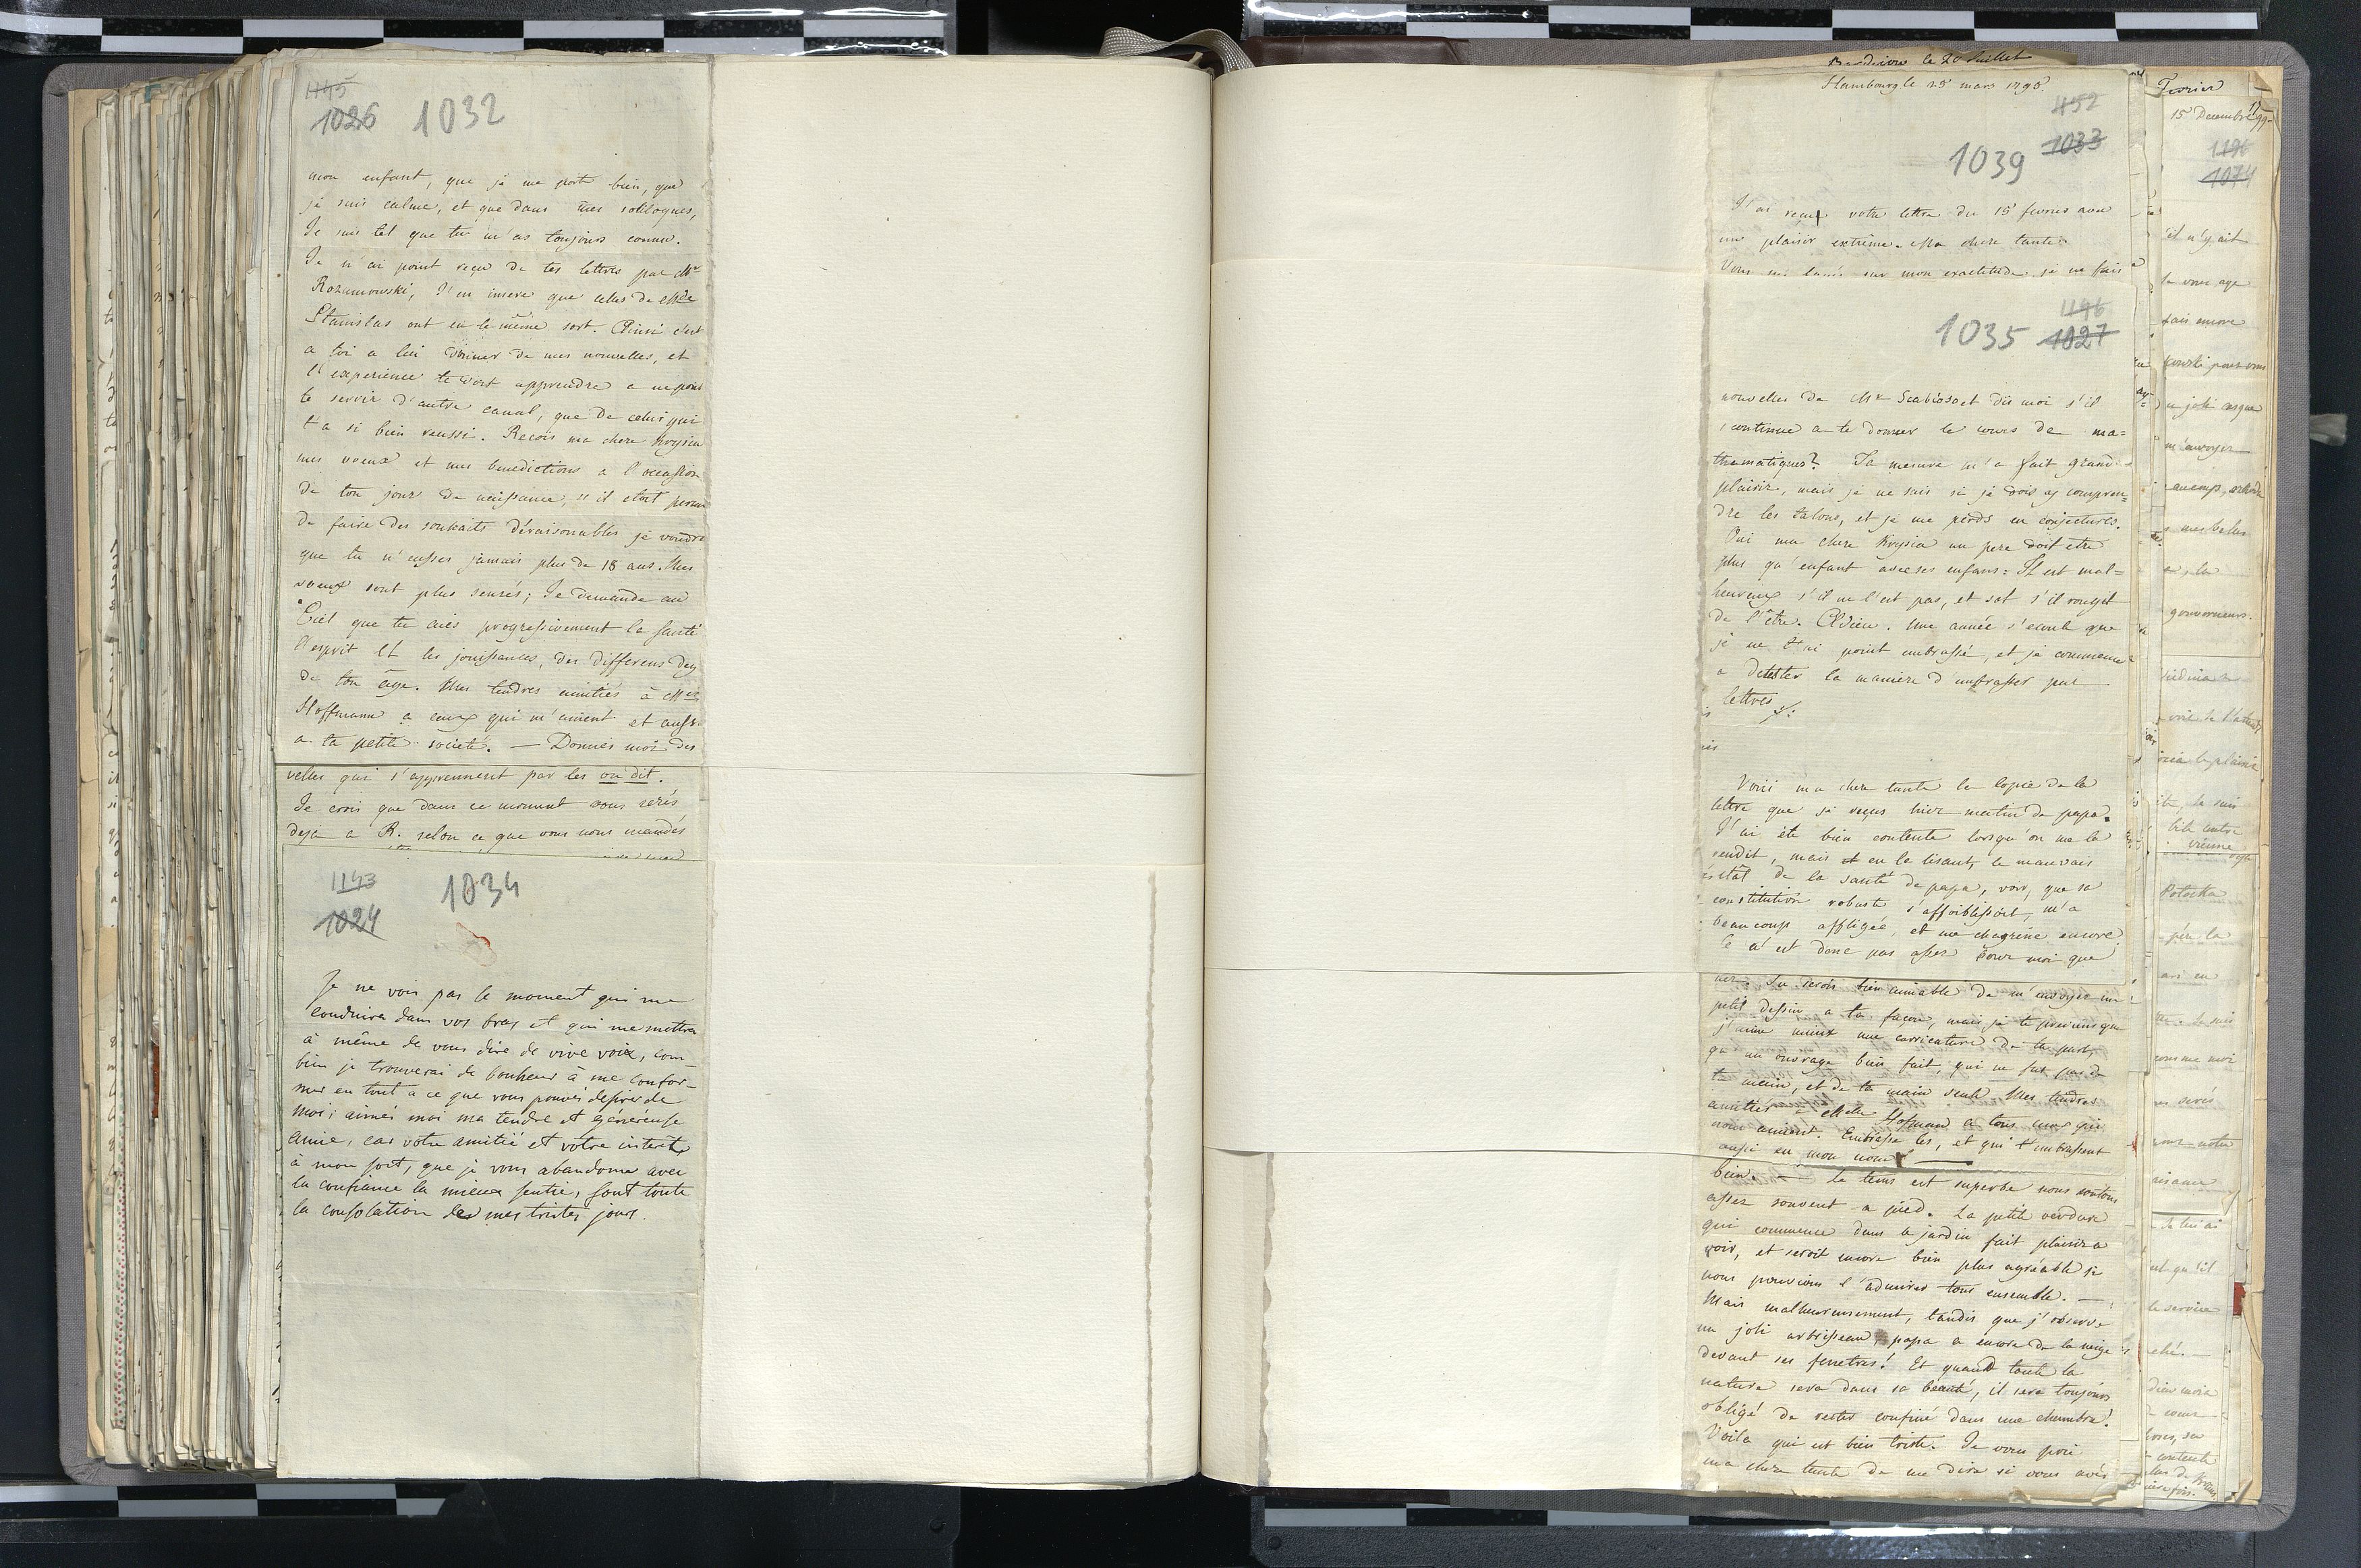 1145
1026 1032
mon enfant, que je me port bien, que
je suis calme, et que dans mes soliloques,
Je suis tel que tu m'as toujours connu.
Je n'ai point reçu de tes lettres par Mr
Rozumowski, J'en insere que celles de Mde
Stanislas ont eu le même sort. Ainsi c'est
a toi a lui donner de mes nouvelles, et
l'experience te doit apprendre a ne point
te servir d'autre canal, que de celui qui
t'a si bien reussi. Recois ma chere Krysia
mes voeux et mes benedictions a l'occassion
de ton jour de naissance, s'il etoit permi
de faire des souhaits déraisonnables je voudro
que tu n'eusses jamais plus de 18 ans. Mes
voeux sont plus sensés; Je demande au
Ciel que tu aies progressivement la santé
l'esprit et les jouissances, des differens
de ton âge. Mes tendres amitiés à
Hoffmann a ceux qui m'aiment et aussi
a ta petite societé. — Donnes moi des
velles qui s'apprennent par les on dit.
Je crois que dans ce moment vous serés
deja a R. selon ce que vous nous mandés
1143
1024 1034
Je ne vois pas le moment qui me
conduira dans vos bras et qui me mettra
à même de vous dire de vive voix, com
bien je trouverai de bonheur à me confor-
mer en tout a ce que vous pouvés desirer de
moi; aimés moi ma tendre et généreuse
amie, car votre amitié et votre interet
à mon sort, que je vous abandonne avec
la confiance la mieux sentie, sont toute
la consolation de mes tristes jours.
le 20 Juillet
Hambourg le 25 mars 1798.
452
1039 1033
J'ai reçue votre lettre du 15 fevrier avec
un plaisir extrême. Ma chere tante
Vous me sur mon exactitude, je ne fais
1146
1035 1027
nouvelles de Mr Scabioso et dis moi s'il
continue a te donner le cours de ma=
thematiques? Ta mesure m'a fait grand
plaisir, mais je ne sais si je dois y compren=
dre les talons, et je me perds en conjectures.
Oui ma chere Krysia un pere doit etre
plus qu'enfant avec ses enfans: Il est mal=
heureux s'il ne l'est pas, et sot s'il rougit
de l'être. Adieu. Une année s'ecoule que
je ne t'ai point embrassé, et je commence
a detester la maniere d'embrasser par
lettres
Voici ma chere tante la copie de la
lettre que je reçus hier matin de papa.
J'ai été bien contente lorsqu'on me la
rendit, mais et en la lisant, le mauvais
état de la santé de papa, voir, que sa
constitution robuste s'affoiblissoit, m'a
beaucoup affligée, et me chagrine encore.
Ce n'est donc pas assez pour moi que
Tu serois bien aimable de m'envoyer un
petit dessin a ta façon, mais je te previens que
j'aime mieux une carricature de ta part,
qu'un ouvrage bien fait, qui ne fut pas de
ta main, et de ta main seule. Mes tendres
amitiés Hofman a tous ceux qui
nous aiment. Embrasse les, et qui t'embrassent
aussi en mon nom
bien. — le tems est superbe nous sortons
assez souvent a pied. La petite verdure
qui commence dans le jardin fait plaisir a
voir, et seroit encore bien plus agréable si
nous pouvions l'admirer tous ensemble. —
Mais malheureusement, tandis que j'observe
un joli arbrisseau, papa a encore de la neige
devant ses fenetres! Et quand toute la
nature sera dans sa beauté, il sera toujours
obligé de rester confiné dans une chambre!
Voila qui est bien triste. Je vous prie
ma chere tante de me dire si vous avés
Fevrier
15 Decembre
1196
1074
il n'y ait
fais encore
m'envoyer
mes belles
gouverneurs.
Potocka
comme moi
serés
notre
Je lui ai
qu'il
le service
contente